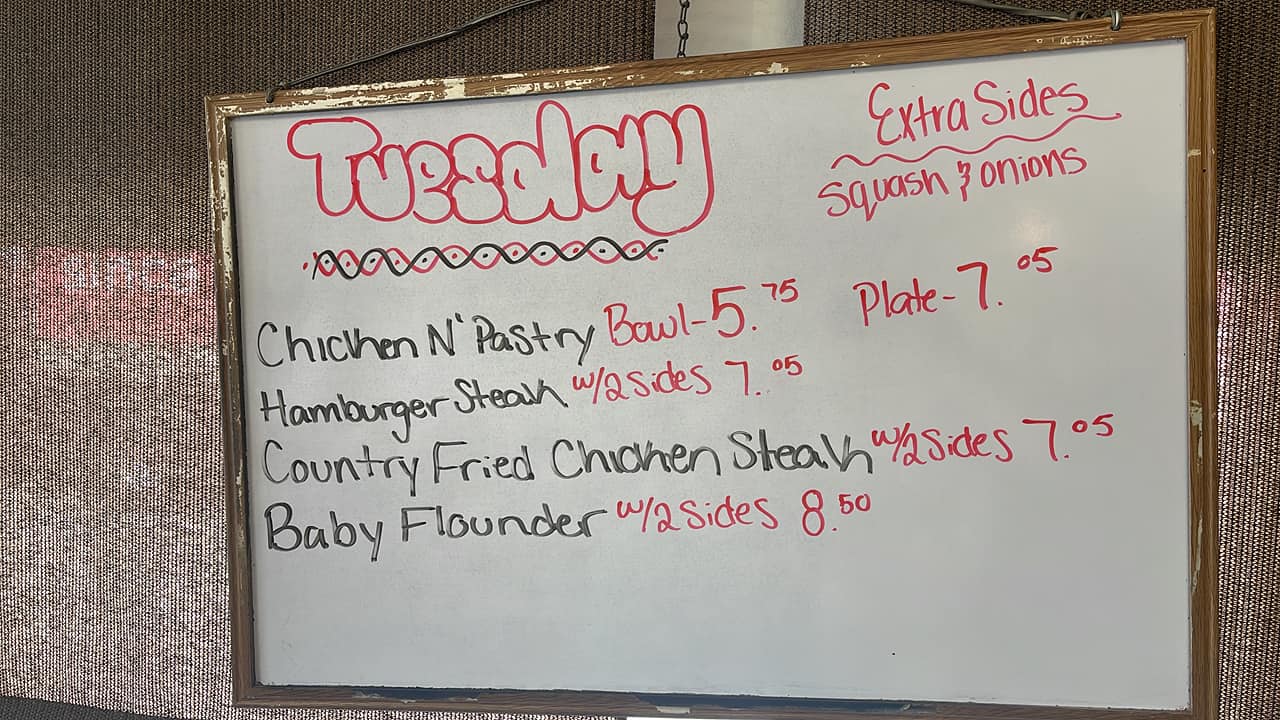 Tuesday
Extra Sides
Squash & onions
Chicken N' Pastry Bowl-5.75 Plate-7.05
Hamburger Steak w/2 sides 7.05
Country Fried Chicken Steak w/2 Sides 7.05
Baby Flounder w/2 Sides 8.50